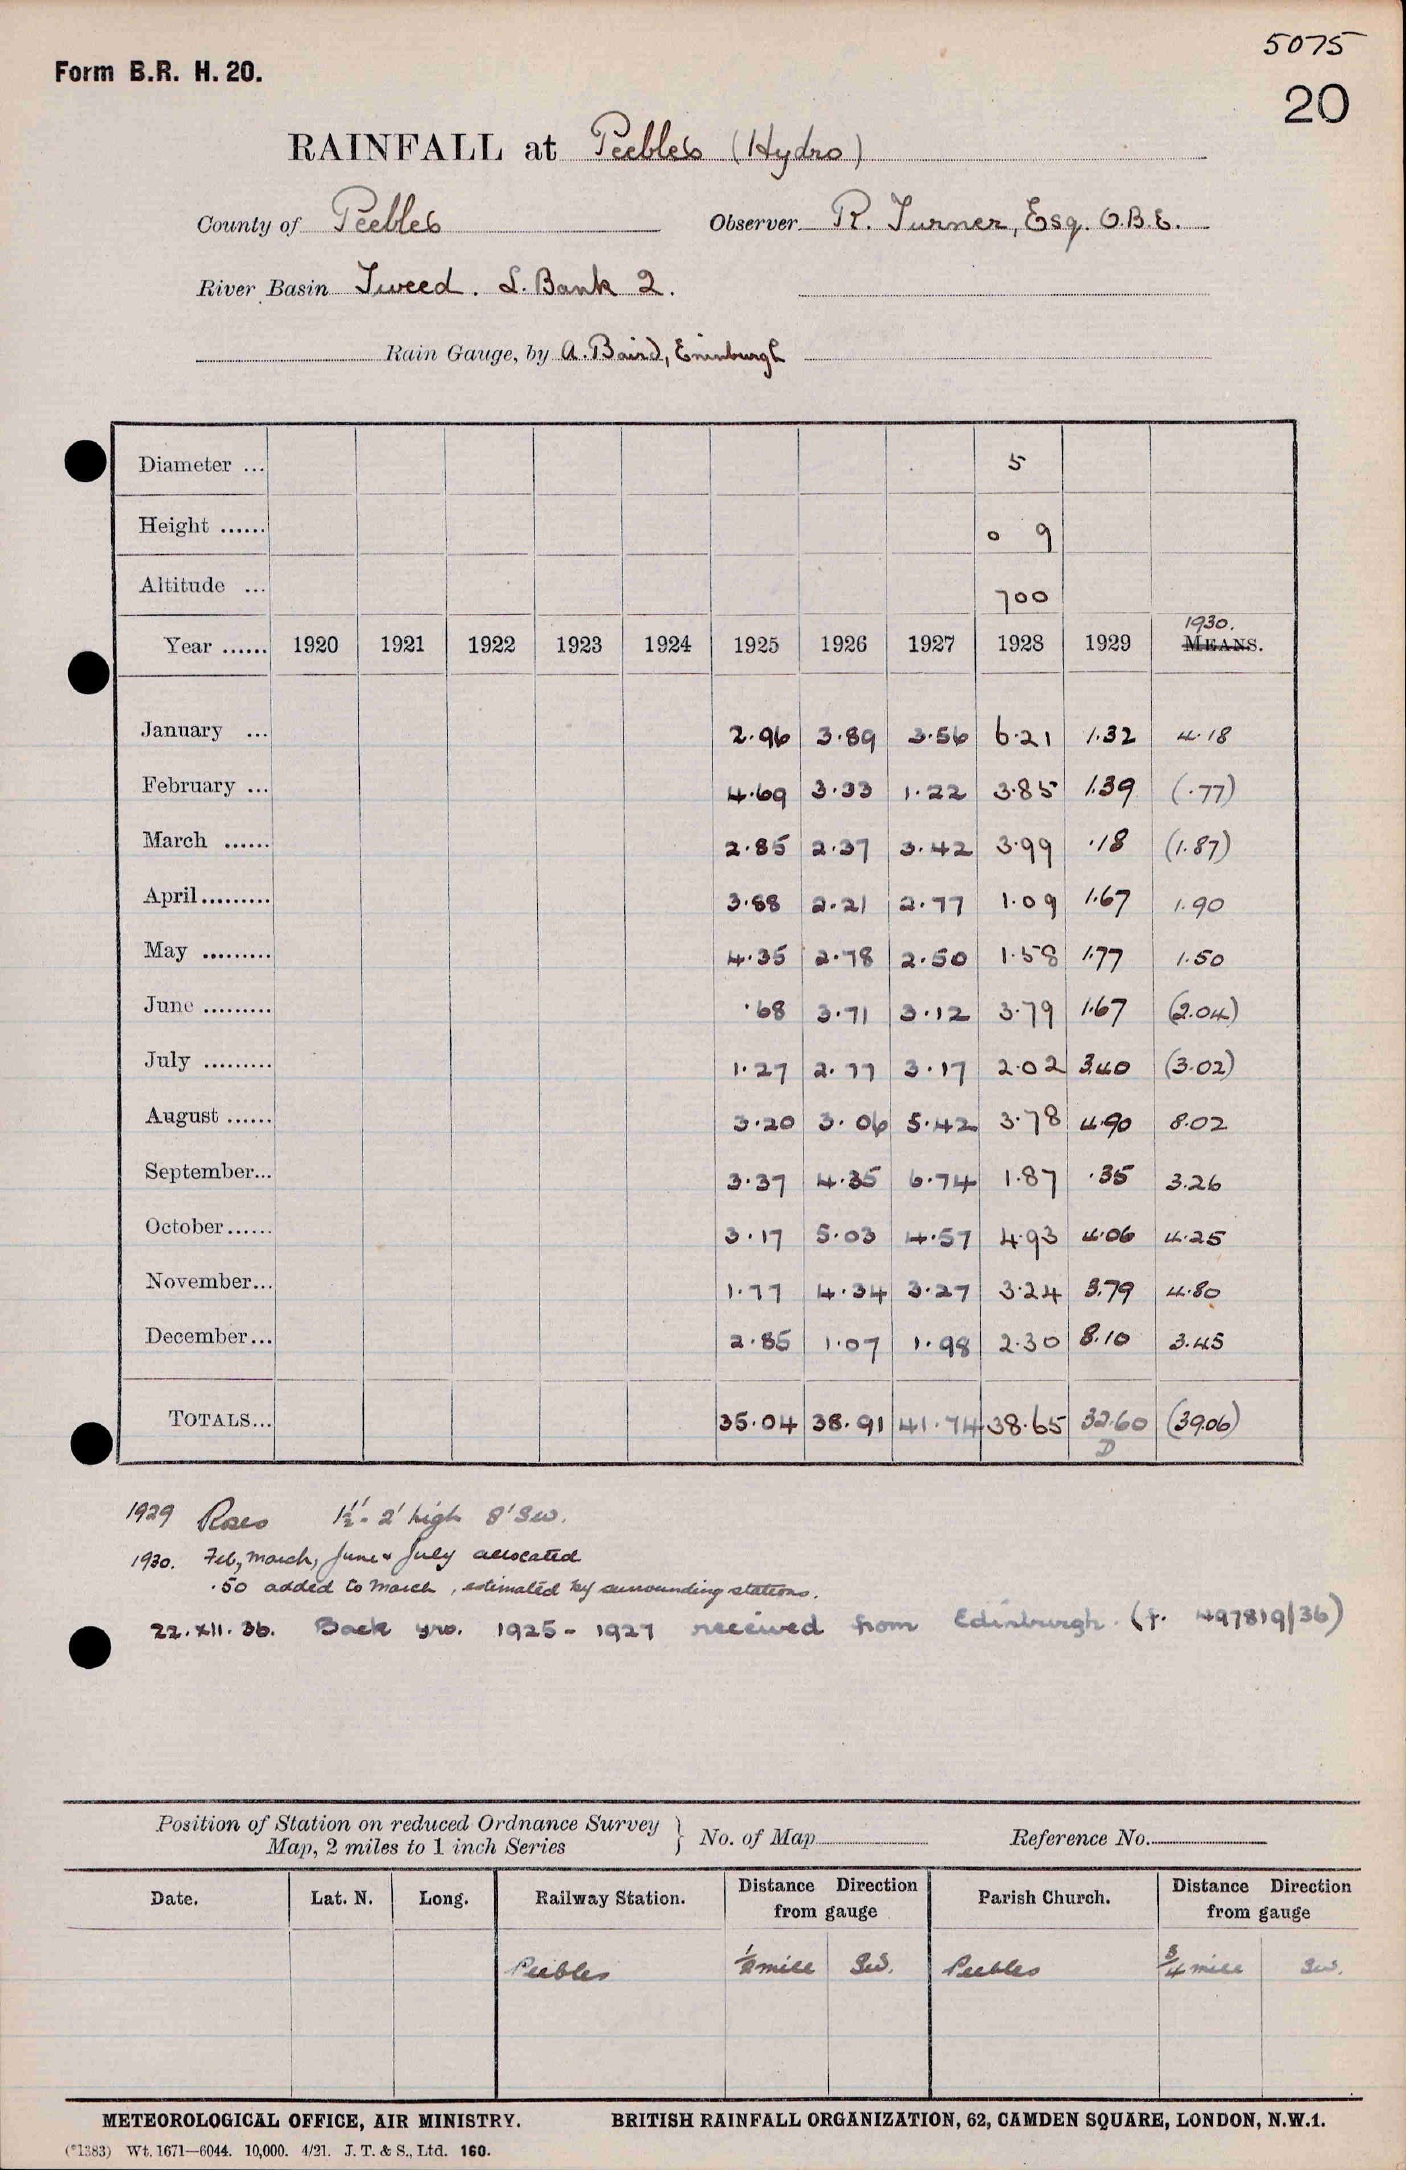 5075
Form B.R. H. 20.
20
RAINFALL at Peebles (Hydro)
County of Peebles Observer R. Turner, Esq. O.B.E.
River Basin Tweed. L. Bank 2.
Rain Gauge, by A. Baird, Eninburgh
Diameter ... 5
Height ...... 0 9
Altitude ... 700
1930.
Year ...... 1920 1921 1922 1923 1924 1925 1926 1927 1928 1929 MEANS.
January ... 2.96 3.89 3.56 6.21 1.32 4.18
February ... 4.69 3.33 1.22 3.85 1.39 (.77)
March ...... 2.85 2.37 3.42 3.99 .18 (1.87)
April......... 3.88 2.21 2.77 1.09 1.67 1.90
May ......... 4.35 2.78 2.50 1.58 1.77 1.50
June ......... .68 3.71 3.12 3.79 1.67 (2.04)
July ......... 1.27 2.77 3.17 2.02 3.40 (3.02)
August ...... 3.20 3.06 5.42 3.78 4.90 8.02
September... 3.37 4.35 6.74 1.87 .35 3.26
October...... 3.17 5.03 4.57 4.93 4.06 4.25
November... 1.77 4.34 3.27 3.24 3.79 4.80
December... 2.85 1.07 1.98 2.30 8.10 3.45
TOTALS... 35.04 38.91 41.74 38.65 32.60 (39.06)
D
1929 Roses 1½'- 2' high 8' SW.
1930. Feb, March, June & July allocated
.50 added to March, estimated by surrounding stations.
22.XII.36. Back yrs. 1925-1927 received from Edinburgh. (f. 497819/36)
Position of Station on reduced Ordnance Survey
Map, 2 miles to 1 inch Series } No. of Map Reference No.
Date. Lat. N. Long. Railway Station. Distance Direction from gauge Parish Church. Distance Direction from gauge
Peebles ½ mile SW. Peebles ¾ mile SW.
METEOROLOGICAL OFFICE, AIR MINISTRY. BRITISH RAINFALL ORGANIZATION, 62, CAMDEN SQUARE, LONDON, N.W.1.
(*1383) Wt. 1671—6044. 10,000. 4/21. J. T. & S., Ltd. 160.